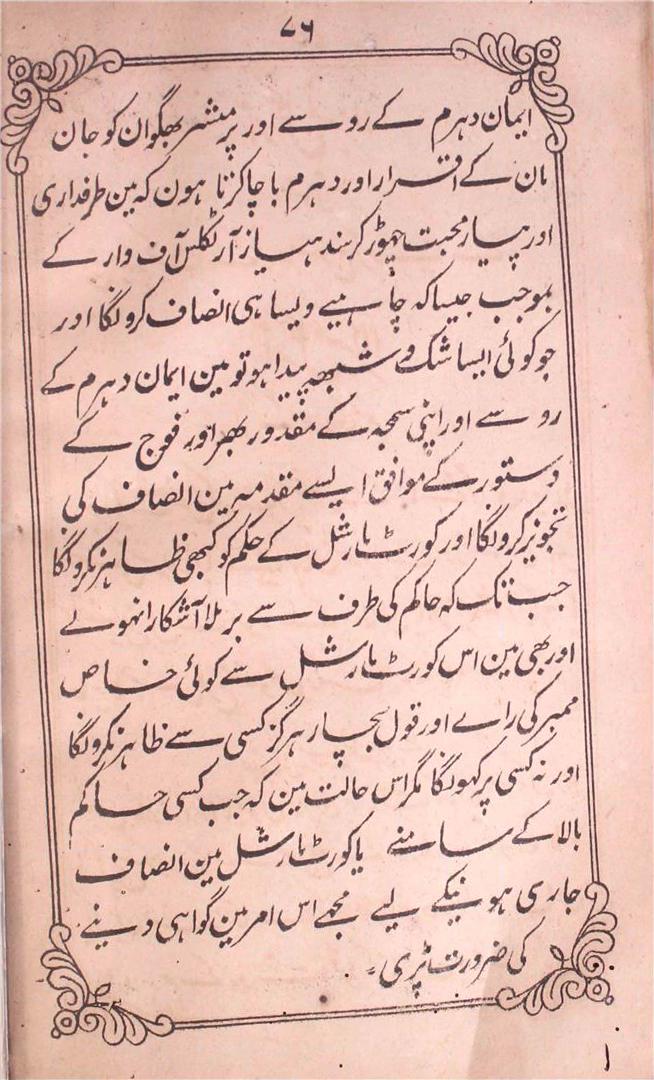 ۷۶
ایمان دہرم کے رو سے اور پرمیشر بھگوان کو جان
مان کے اقرار اور دہرم باچا کرتا ہون کہ مین طرفداری
اور پیار محبت چہوڑ کر سند ہیاز آرٹکلس آف وار کے
بموجب جیسا کہ چاہیے ویسا ہی انصاف کرونگا اور
جو کوئی ایسا شک و شبھہ پیدا ہو تو مین ایمان دہرم کے
رو سے اور اپنی سمجہ کے مقدور بھر اور فوج کے
دستور کے موافق ایسے مقدمہ مین انصاف کی
تجویز کرونگا اور کورٹ مارشل کے حکم کو کبھی ظاہر نکرونگا
جب تک کہ حاکم کی طرف سے برملا آشکارا نہولے
اور بھی مین اس کورٹ مارشل سے کوئی خاص
ممبر کی راے اور قول بچار ہرگز کسی سے ظاہر نکرونگا
اور نہ کسی پر کہونگا مگر اس حالت مین کہ جب کسی حاکم
بالا کے سامنے یا کورٹ مارشل مین انصاف
جاری ہونیکے لیے مجہے اس امر مین گواہی دینے
کی ضرورت پڑی۔